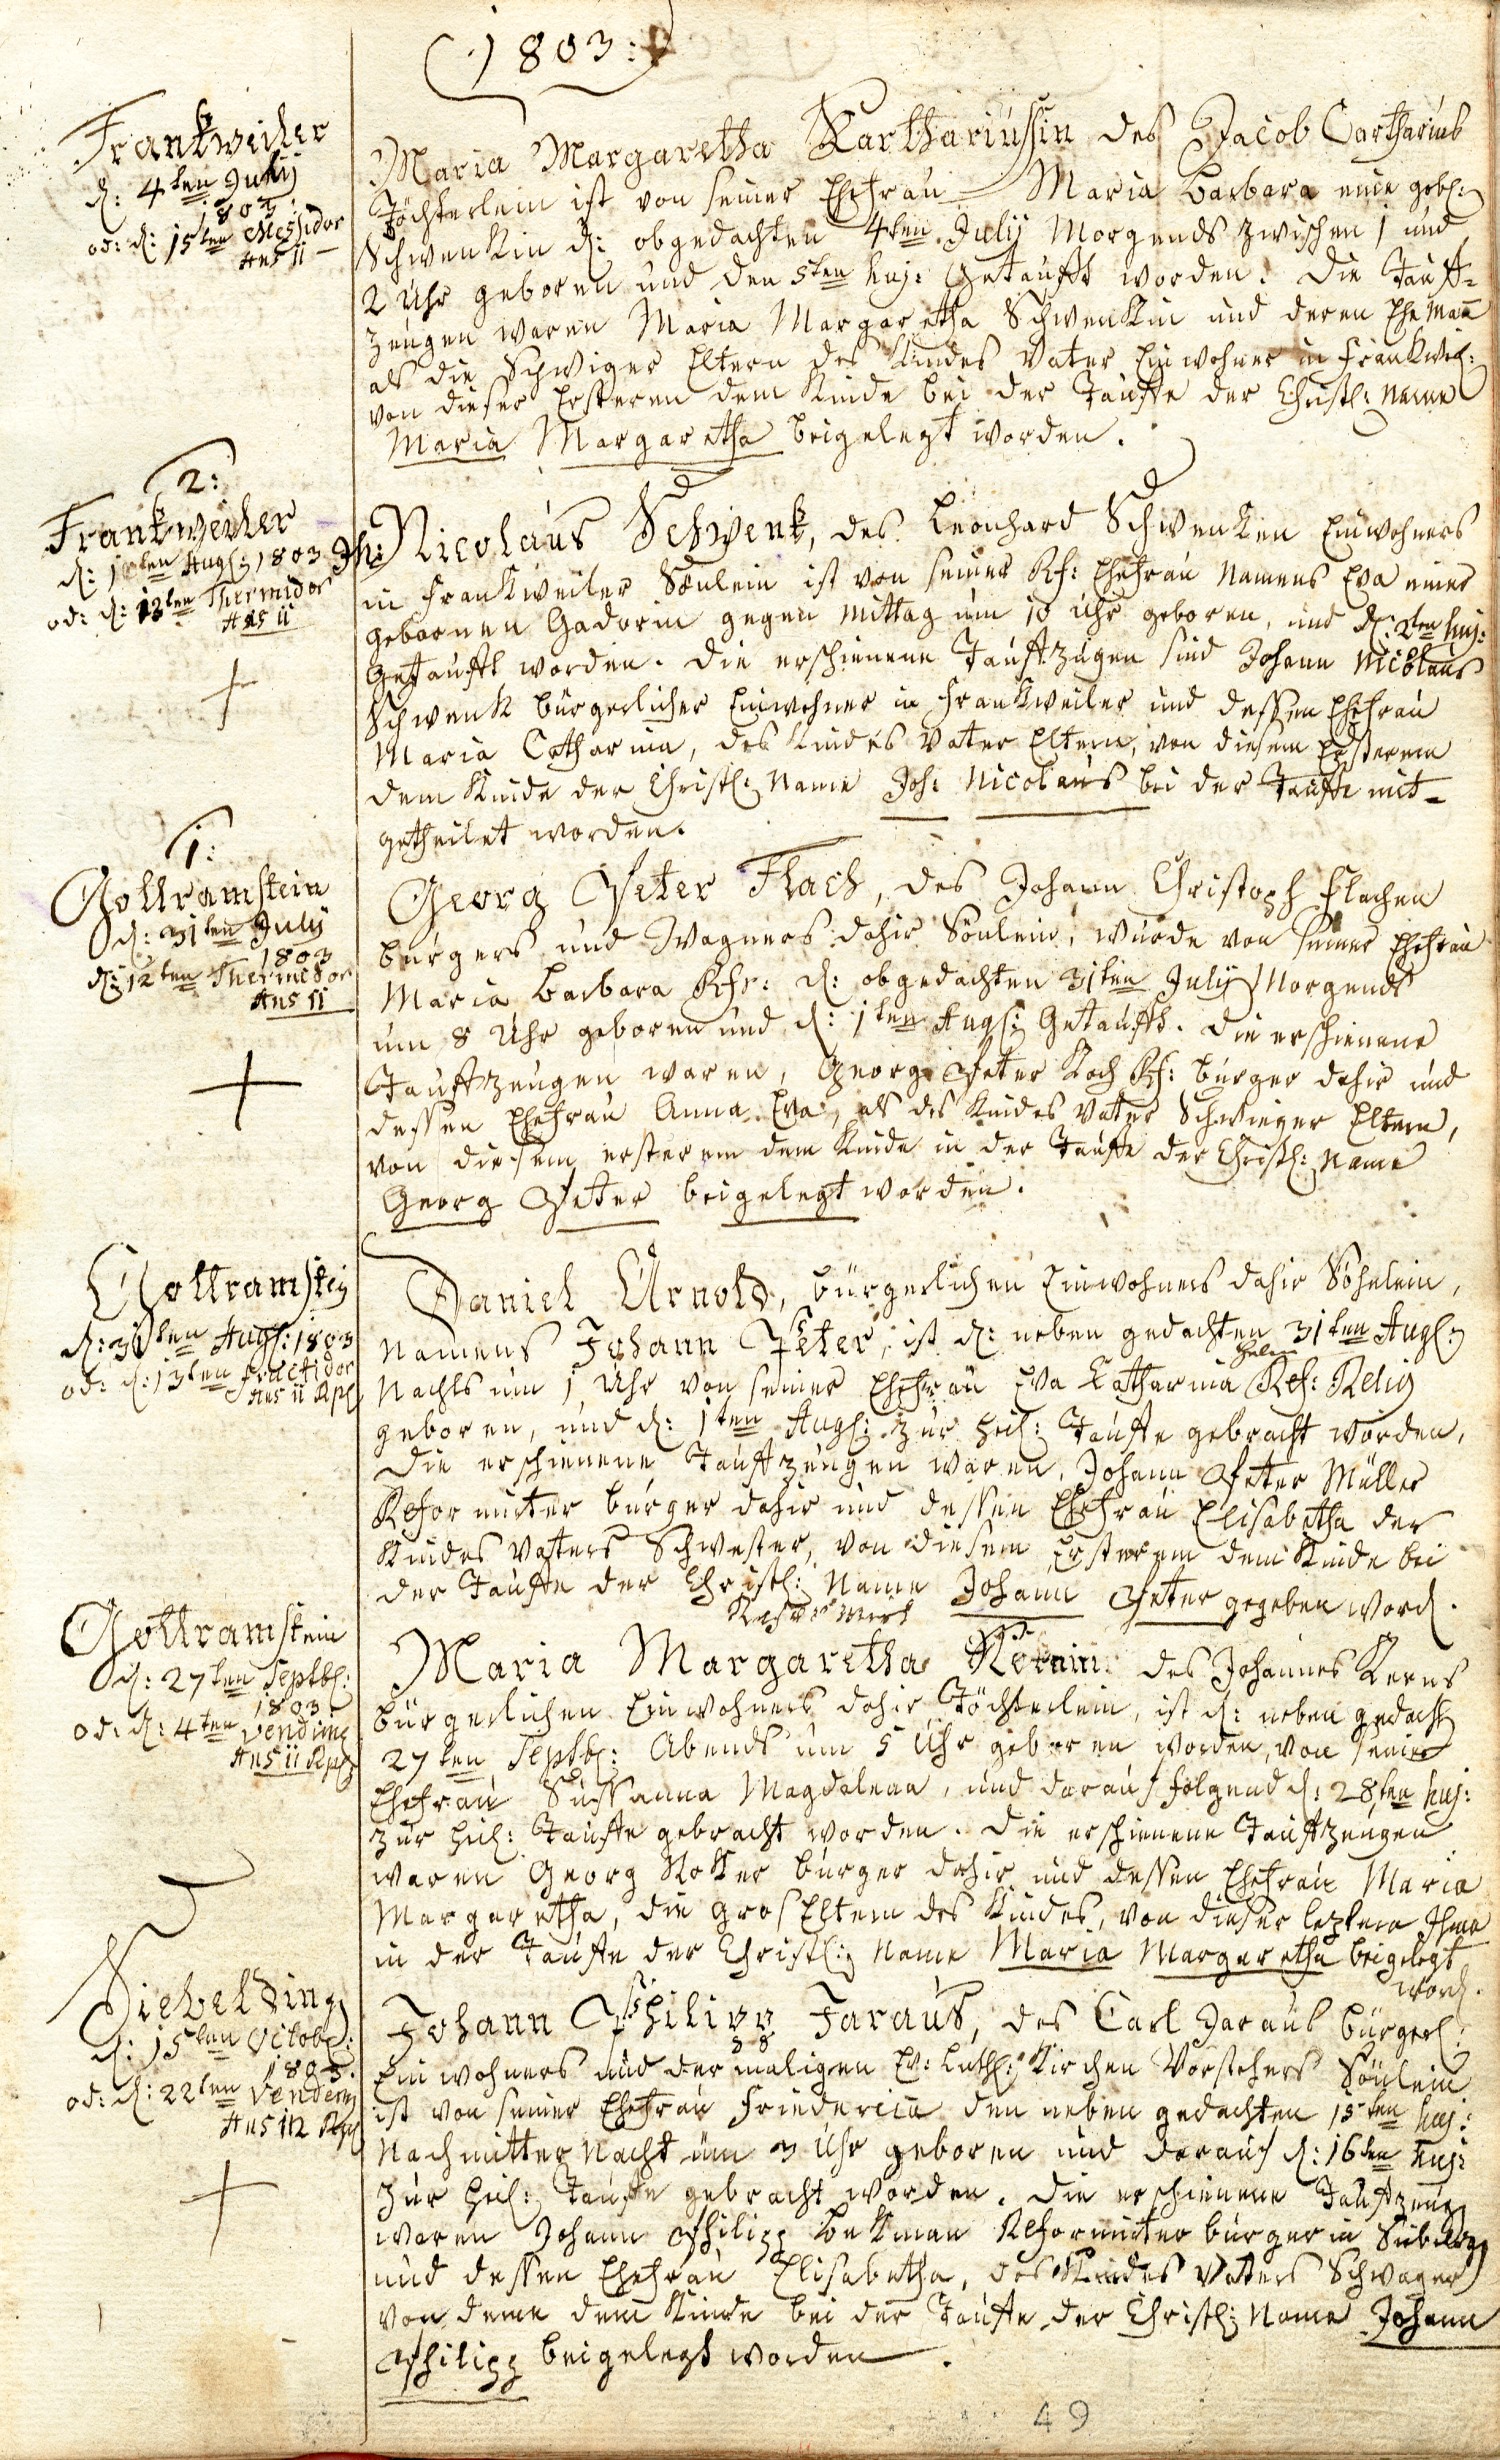 1803:
Frankweiler
d: 4ten Julij
803
od: d: 15ten Messidor
Ans 11
Maria Margaretha Karthariussin des Jacob Cartharius
Töchterlein ist von seiner Ehefrau Maria Barbara eine geb:
Schwenkin d: obgedachten 4ten Julij Morgends zwischen 1 und
2 Uhr geboren und den 5ten huj: Getaufft worden. Die Tauff-
zeugen waren Maria Margaretha Schwenkin und deren Ehe Man
als die Schwiger Eltern des Kindes Vater Einwohner in Frankweil:
von dieser Ersteren dem Kinde bei der Tauffe der Christl: Name
Maria Margaretha beigelegt worden.
2:
Frankweiler
d: 1ten Augs: 1803
od: d: 13ten Thermidor
Ans 11
Jh: Nicolaus Schwenk, des Leonhard Schwenken Einwohners
in Frankweiler Sönlein ist von seiner Rf: Ehefrau Namens Eva einer
gebornen Gadorin gegen Mittag um 10 Uhr geboren, und d: 2ten huj:
Getaufft worden. Die erschienene Tauffzeugen sind Johann Nicolaus
Schwenk bürgerlicher Einwohner in Frankweiler und dessen Ehefrau
Maria Catharina, des Kindes Vater Eltern, von diesem Ersterem
dem Kinde der Christl: Name Joh: Nicolaus bei der Tauffe mit-
getheilet worden.
1:
Gottramstein
d: 31ten Julij
1803
d: 12ten Thermidor
Ans 11
Georg Peter Flach, des Johann Christoph Flachen
bürgers und Wagners dahir Sönlein, wurde von seiner Ehefrau
Maria Barbara d: obgedachten 31ten Julij Morgends
um 8 Uhr geboren und d: 1ten Augs: Getaufft. Die erschienene
Tauffzeugen waren, Georg Peter Koch Rf: bürger dahir und
dessen Ehefrau Anna Eva, als des Kindes Vater Schwieger Eltern,
von diesem ersterem dem Kinde in der Tauffe der Christl: Name
Georg Peter beigelegt worden.
Gottramstein
d: 31ten Augs: 1803
od: d: 13ten fructidor
Ans 11 Rpl
Daniel Arnold, bürgerlichen Einwohners dahir Söhnlein,
Namens Johann Peter, ist d: neben gedachten 31ten Augs:
Nachts um 1 Uhr von seiner Ehefrau Eva Catharina Ref: Relig
geboren, und d: 1ten Augs: zur heil: Tauffe gebracht worden,
Die erschienene Tauffzeugen waren, Johann Peter Müller
Reformirter bürger dahir und dessen Ehefrau Elisabetha der
Kindes Vaters Schwester, von diesem Ersterem dem Kinde bei
der Tauffe der Christl: Name Johann Peter gegeben word.
Gottramstein
d: 27ten Septbl:
1803
od: d: 4ten Vendime
Ans 11 Rpl
Maria Margaretha Kernin des Johannes Kerns
bürgerlichen Einwohners dahir Töchterlein, ist d: neben gedacht
27ten Septbl: Abends um 5 Uhr geboren worden, von seiner
Ehefrau Sussanna Magdalena, und darauf folgend d: 28ten huj:
zur heil: Tauffe gebracht worden. Die erschienene Tauffzeugen
waren Georg bürger dahir und dessen Ehefrau Maria
Margaretha, die GrosEltern des Kindes, von dieser leztern Ihme
in der Tauffe der Christl: Name Maria Margaretha beigelegt
word.
Siebelding
d: 15ten Octobl:
1803.
od: d: 22ten Vendem
Ans 12 Rpl
Johann Philipp Faraus, des Carl Faraus bürgerl:
Einwohners und dermaligen Ev: Luth: Kirchen Vorstehers Sönlein
ist von seiner Ehefrau Friedericia den neben gedachten 15ten huj:
Nachmitter Nacht um 3 Uhr geboren und darauf d: 16ten huj:
zur heil: Tauffe gebracht worden. Die erschienene Tauffzeug
waren Johann Philipp Reformirter bürger in Siebeldg
und dessen Ehefrau Elisabetha, des Kindes Vaters Schwager
von deme dem Kinde bei der Tauffe der Christl: Name Johann
Philipp beigelegt worden.
49